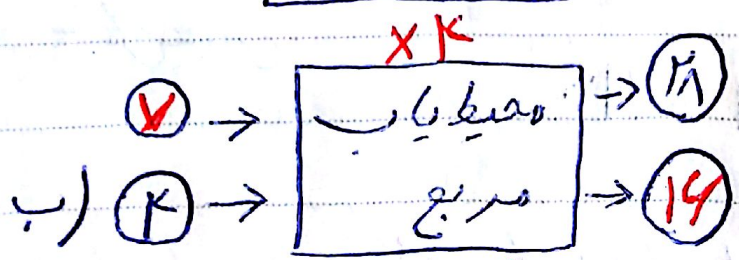 ×۴
۷ → محیط یاب → ۲۸
ب) ۴ → مربع → ۱۶